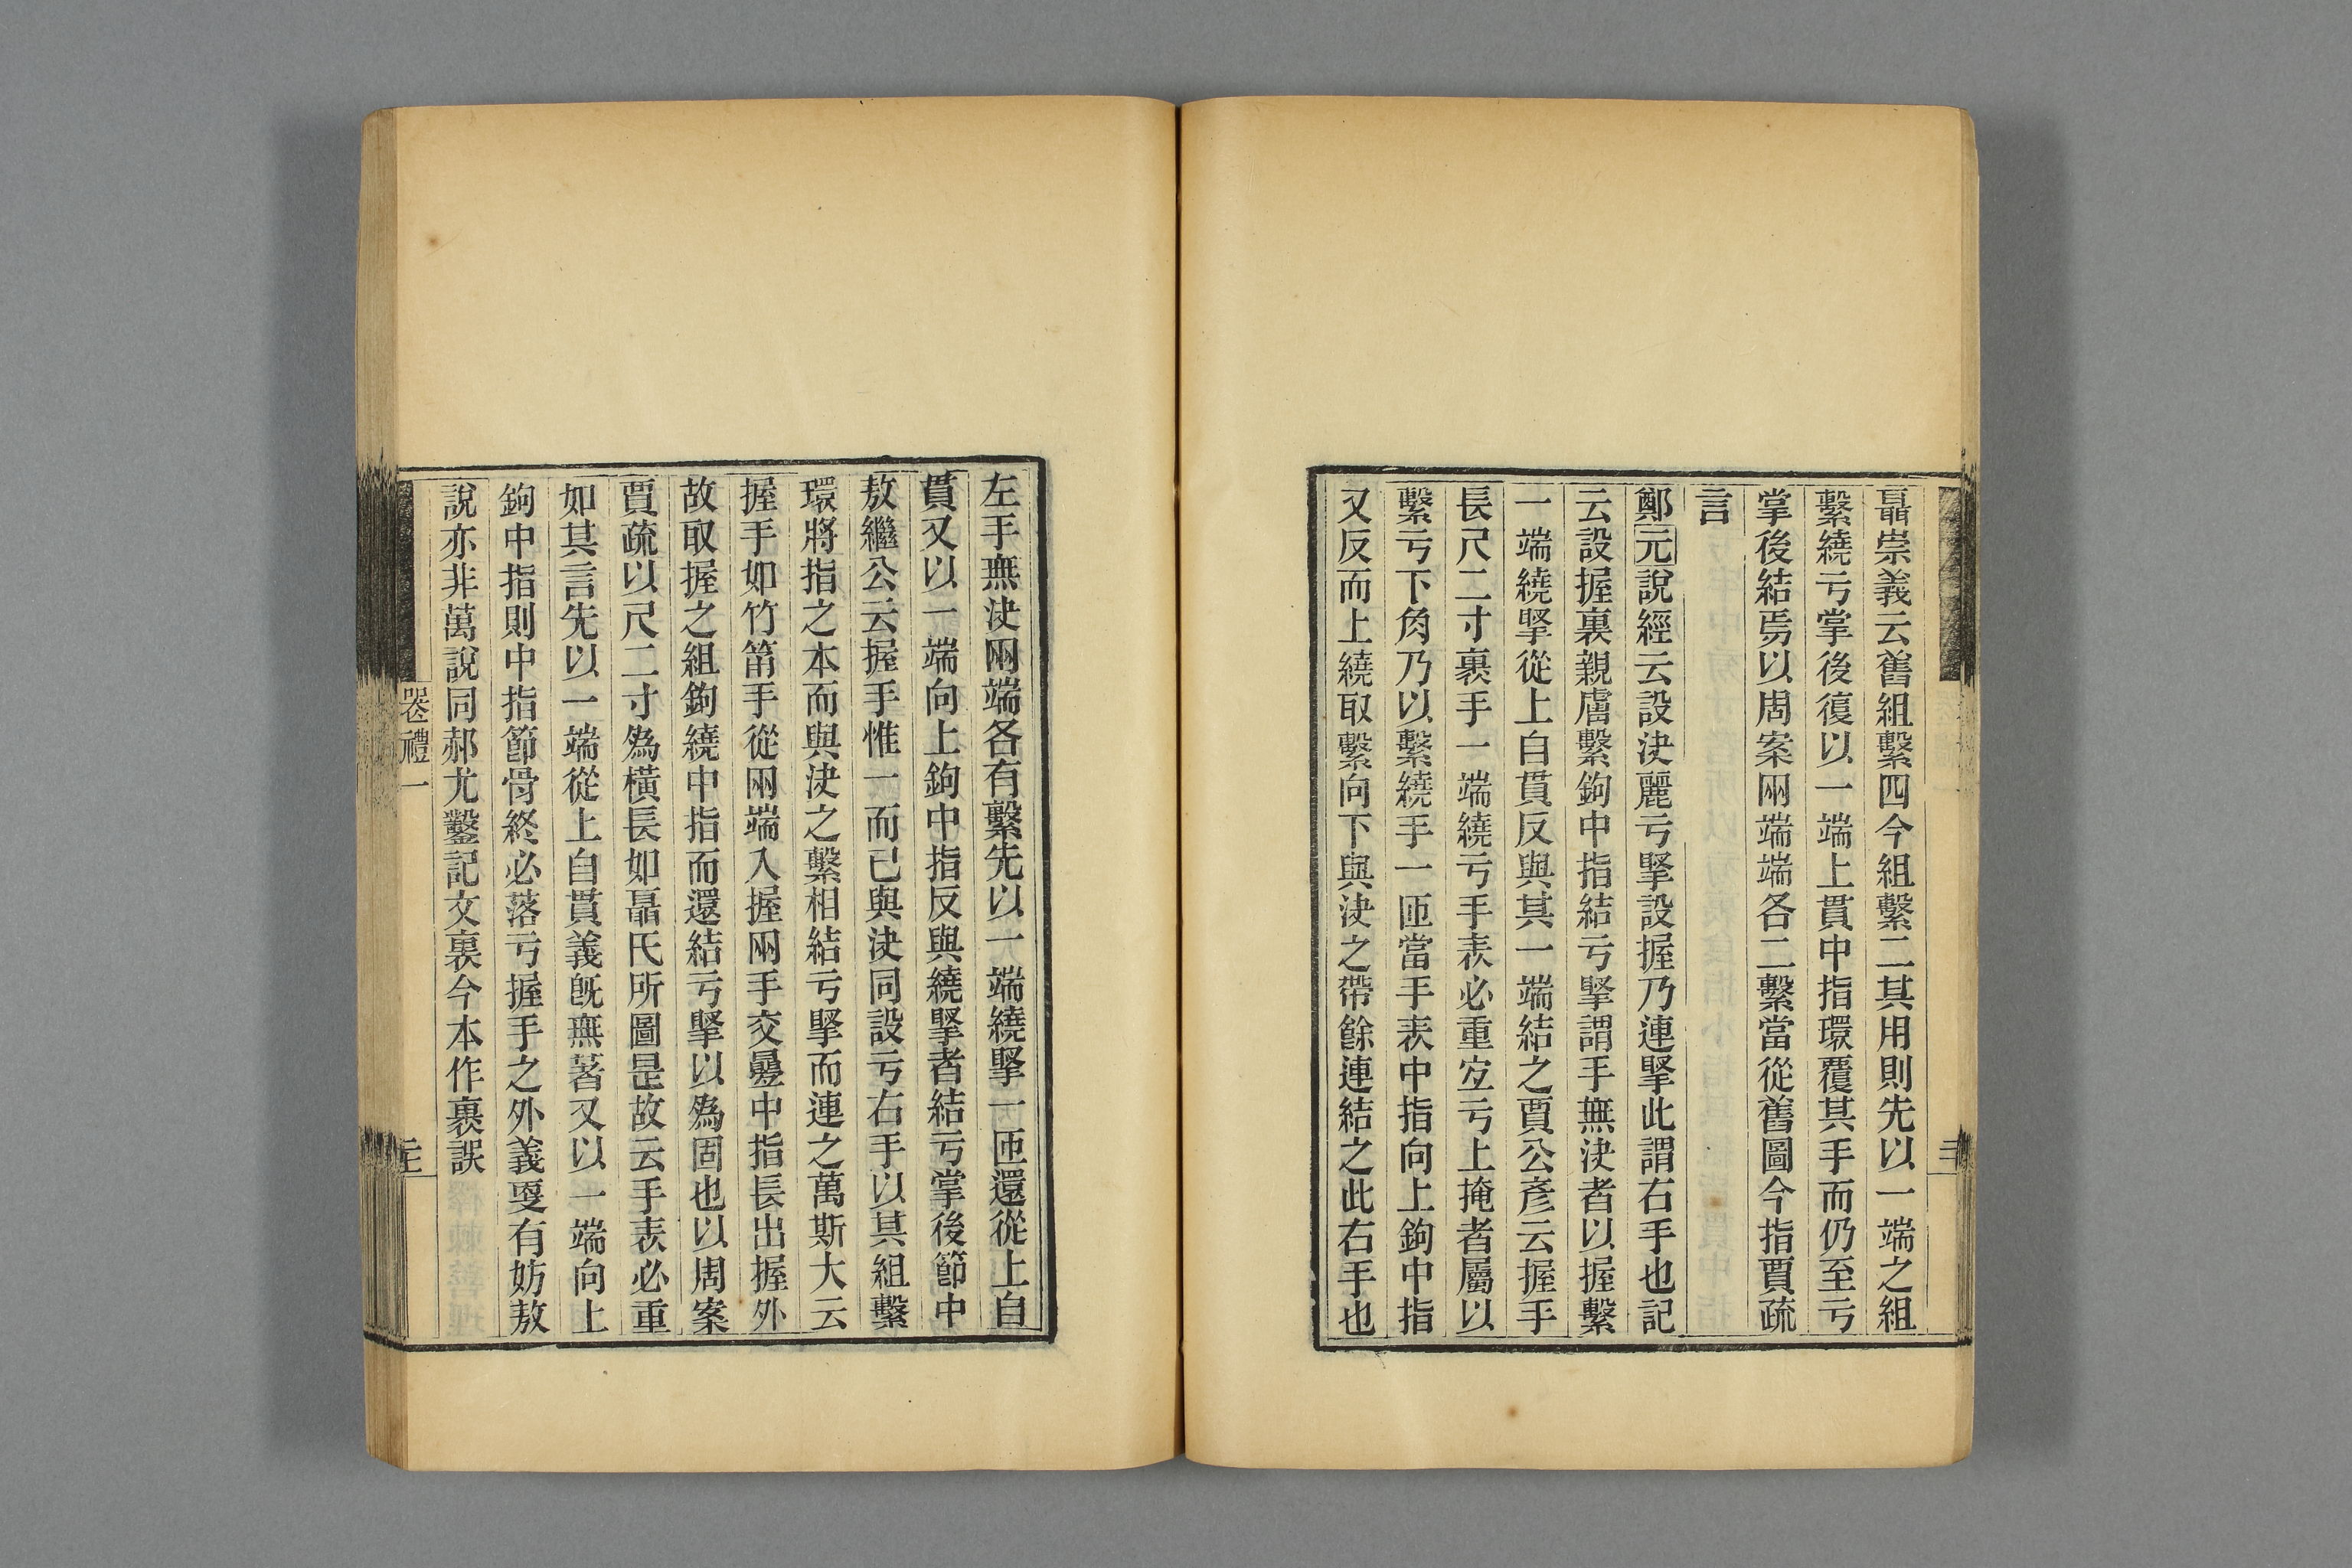 聶崇義云舊組繫四今組繫二其用則先以一端之組
繫繞亏掌後復以一端上貫中指環覆其手而仍至亏
掌後結焉以周案兩端端各二繫當從舊圖今指賈疏
言
鄭元說經云設決麗亏掔設握乃連掔此謂右手也記
云設握裏親膚繫鉤中指結亏掔謂手無決者以握繫
一端繞掔從上自貫反與其一端結之賈公彥云握手
長尺二寸裹手一端繞亏手表必重宐亏上掩者屬以
繫亏下角乃以繫繞手一匝當手表中指向上鉤中指
又反而上繞取繫向下與決之帶餘連結之此右手也
左手無決兩端各有繫先以一端繞掔一匝還從上自
貫又以一端向上鉤中指反與繞掔者結亏掌後節中
敖繼公云握手惟一而已與決同設亏右手以其組繫
環將指之本而與決之繫相結亏掔而連之萬斯大云
握手如竹筩手從兩端入握兩手交曑中指長出握外
故取握之組鉤繞中指而還結亏掔以爲固也以周案
賈疏以尺二寸爲橫長如聶氏所圖昰故云手表必重
如其言先以一端從上自貫義旣無著又以一端向上
鉤中指則中指節骨終必落亏握手之外義㪅有妨敖
說亦非萬說同郝尤鑿記文裏今本作裹誤
喪禮一